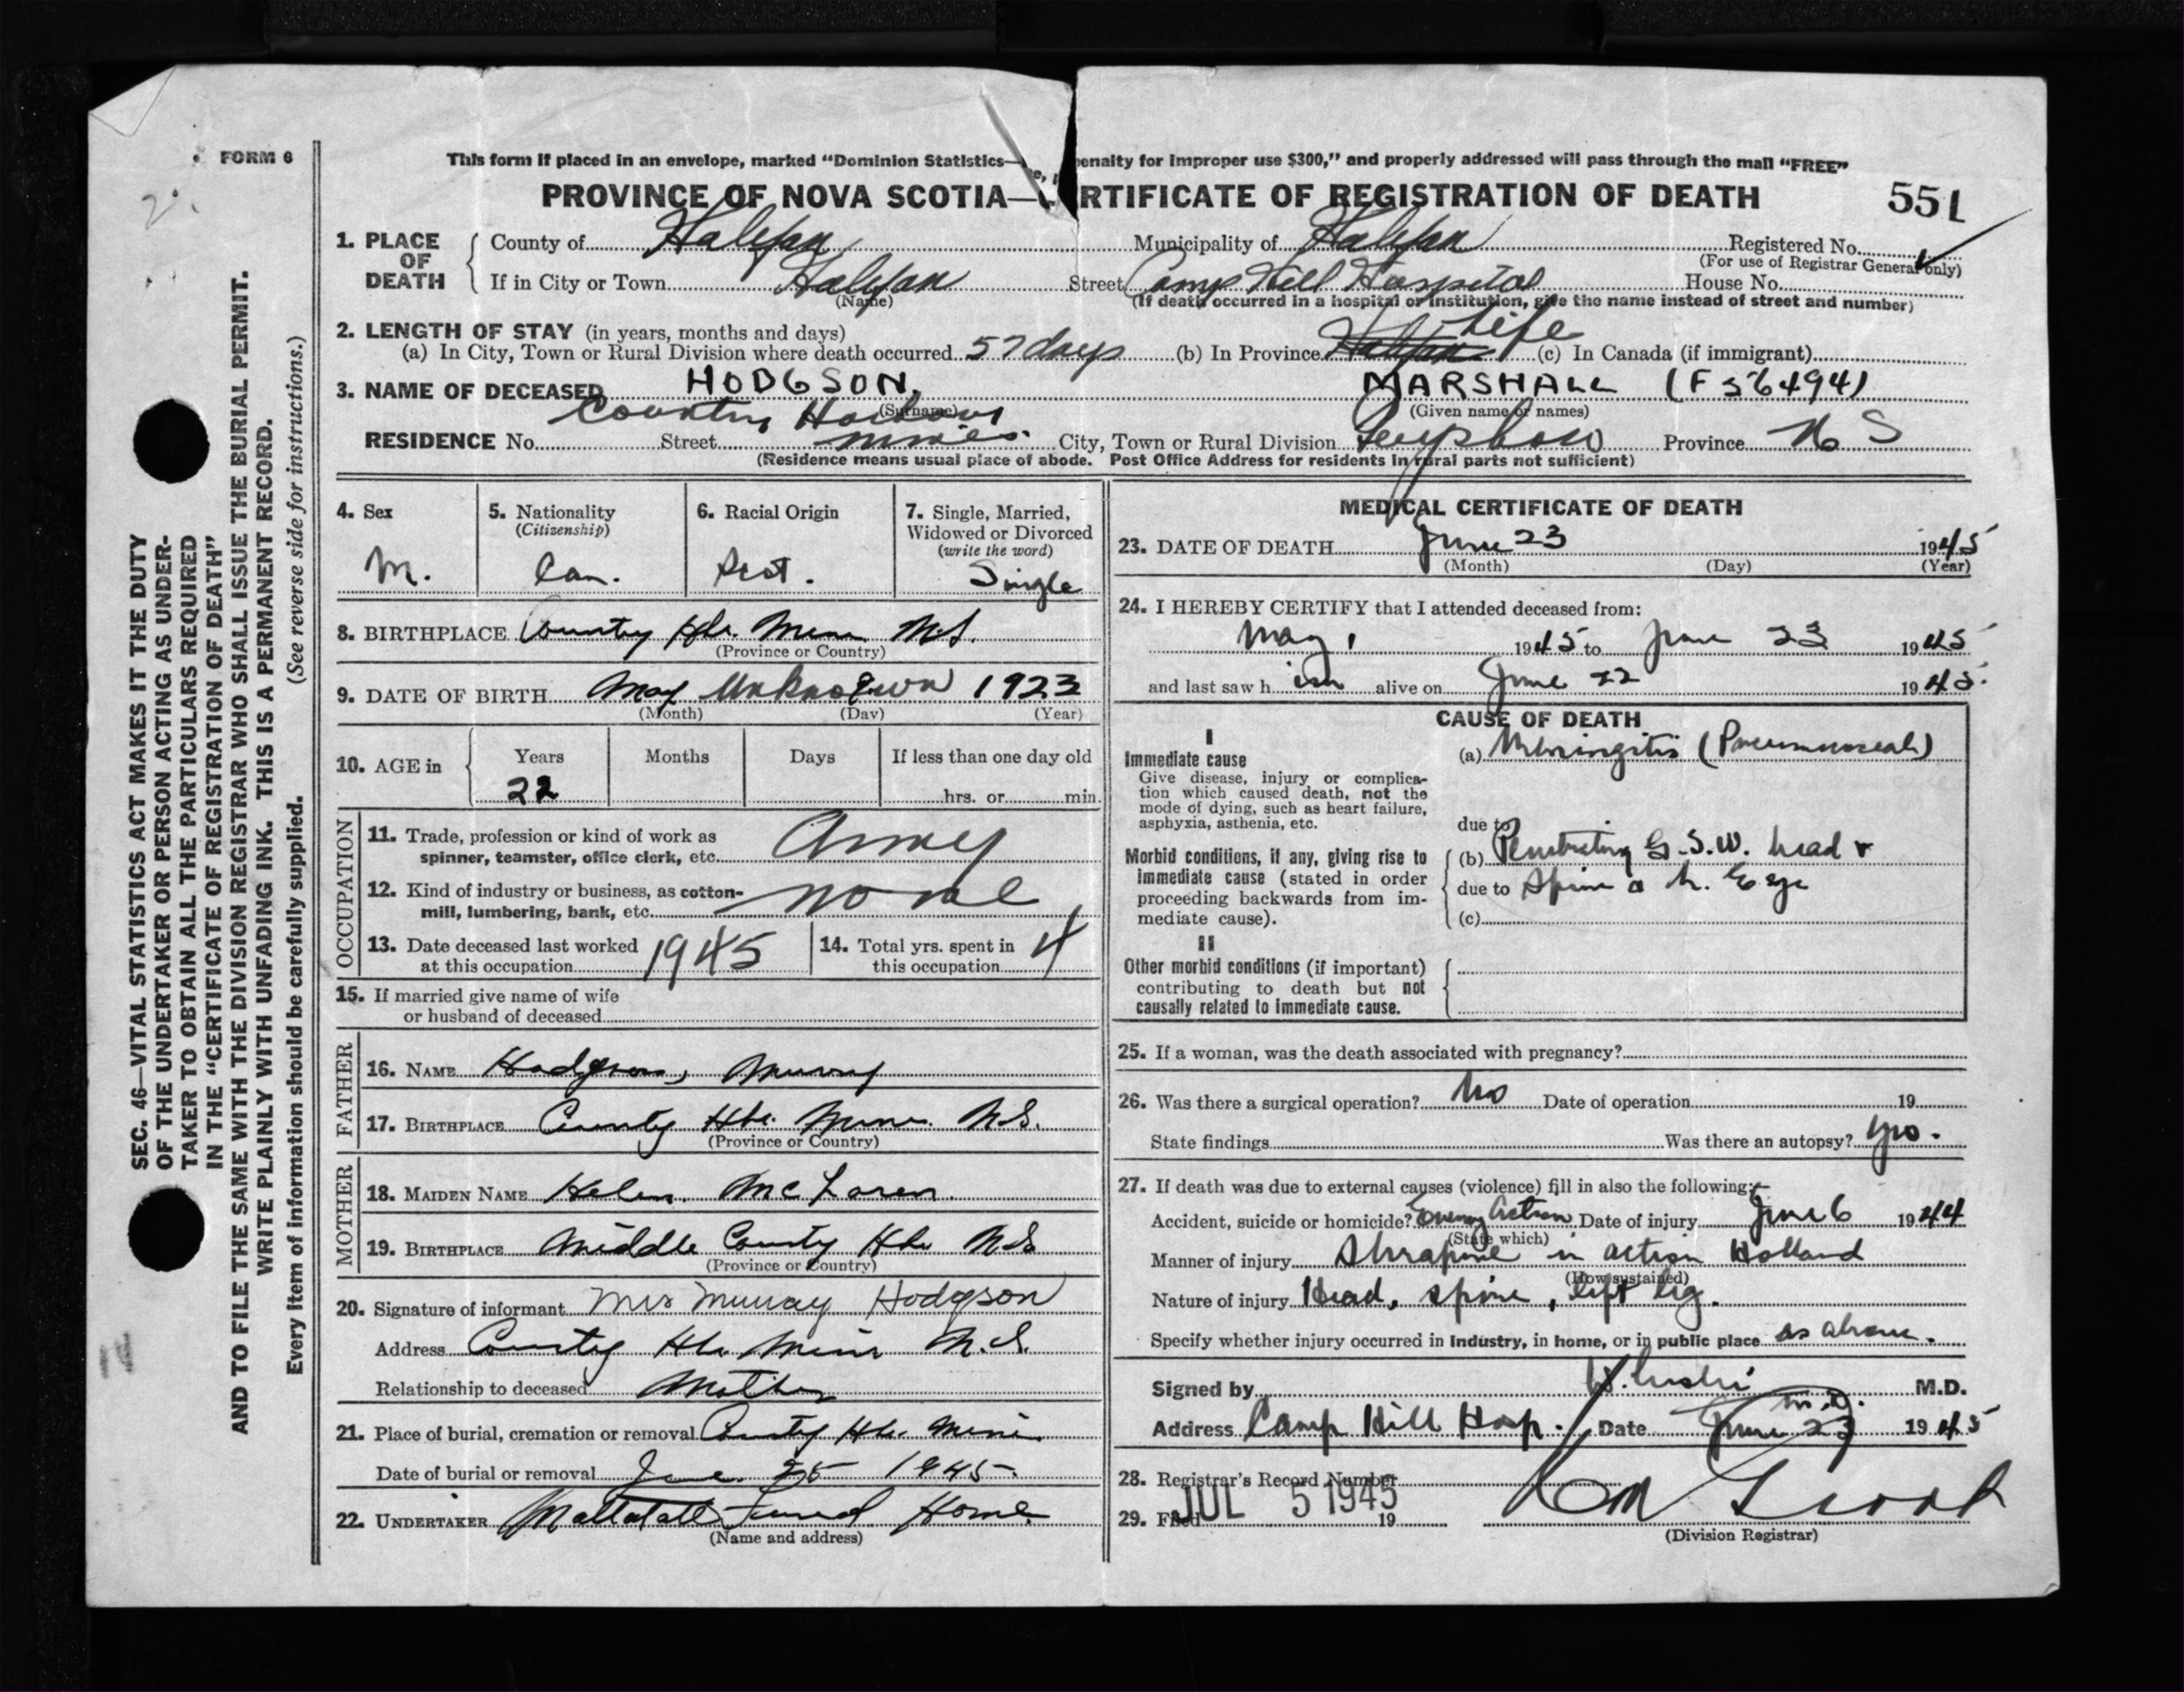 FORM 6
This form if placed in an envelope, marked “Dominion Statistics— penalty for improper use $300,” and properly addressed will pass through the mail “FREE”
PROVINCE OF NOVA SCOTIA—CERTIFICATE OF REGISTRATION OF DEATH 551
1. PLACE OF DEATH County of Halifax Municipality of Halifax Registered No.
(For use of Registrar General only)
If in City or Town Halifax Street Camp Hill Hospital House No.
(Name) (If death occurred in a hospital or institution, give the name instead of street and number)
2. LENGTH OF STAY (in years, months and days) Life
(a) In City, Town or Rural Division where death occurred 57 days (b) In Province Halifax (c) In Canada (if immigrant)
3. NAME OF DECEASED HODGSON. MARSHALL (F 56494)
(Surname) (Given name or names)
Country Harbour
RESIDENCE No. Street mines. City, Town or Rural Division Province N S
(Residence means usual place of abode. Post Office Address for residents in rural parts not sufficient)
4. Sex M.
5. Nationality (Citizenship) Can.
6. Racial Origin Scot.
7. Single, Married, Widowed or Divorced (write the word) Single
8. BIRTHPLACE Country Hbr. Mines N.S.
(Province or Country)
9. DATE OF BIRTH May Unknown 1923
(Month) (Day) (Year)
10. AGE in Years Months Days If less than one day old
22 hrs. or min.
OCCUPATION
11. Trade, profession or kind of work as spinner, teamster, office clerk, etc. Army
12. Kind of industry or business, as cotton-mill, lumbering, bank, etc. none
13. Date deceased last worked at this occupation 1945
14. Total yrs. spent in this occupation 4
15. If married give name of wife
or husband of deceased
FATHER
16. NAME Hodgson, Murray
17. BIRTHPLACE Country Hbr. Mines N.S.
(Province or Country)
MOTHER
18. MAIDEN NAME Helen McLaren.
19. BIRTHPLACE Middle Country Hbr N.S.
(Province or Country)
20. Signature of informant Mrs Murray Hodgson
Address Country Hbr Mines N.S.
Relationship to deceased Mother
21. Place of burial, cremation or removal Country Hbr. Mines
Date of burial or removal June 25 1945.
22. UNDERTAKER Mattatall Funeral Home
(Name and address)
MEDICAL CERTIFICATE OF DEATH
23. DATE OF DEATH June 23 1945
(Month) (Day) (Year)
24. I HEREBY CERTIFY that I attended deceased from:
May 1 1945 to June 23 1945
and last saw h im alive on June 22 1945.
CAUSE OF DEATH
I
Immediate cause (a) Meningitis (Pneumococcal)
Give disease, injury or complica-
tion which caused death, not the
mode of dying, such as heart failure,
asphyxia, asthenia, etc. due to
Morbid conditions, if any, giving rise to (b) Penetrating G.S.W. head &
immediate cause (stated in order due to Spine
proceeding backwards from im-
mediate cause). (c)
II
Other morbid conditions (if important)
contributing to death but not
causally related to immediate cause.
25. If a woman, was the death associated with pregnancy?
26. Was there a surgical operation? No Date of operation 19
State findings Was there an autopsy? yes.
27. If death was due to external causes (violence) fill in also the following:
Accident, suicide or homicide? Enemy Action Date of injury June 6 1944
(State which)
Manner of injury Shrapnel in action Holland
(How sustained)
Nature of injury Head, spine, left leg.
Specify whether injury occurred in industry, in home, or in public place as above.
Signed by M.D.
Address Camp Hill Hosp. Date June 23 1945
28. Registrar's Record Number
29. Filed JUL 5 1945 19
(Division Registrar)
SEC. 46—VITAL STATISTICS ACT MAKES IT THE DUTY
OF THE UNDERTAKER OR PERSON ACTING AS UNDER-
TAKER TO OBTAIN ALL THE PARTICULARS REQUIRED
IN THE “CERTIFICATE OF REGISTRATION OF DEATH”
AND TO FILE THE SAME WITH THE DIVISION REGISTRAR WHO SHALL ISSUE THE BURIAL PERMIT.
WRITE PLAINLY WITH UNFADING INK. THIS IS A PERMANENT RECORD.
Every item of information should be carefully supplied. (See reverse side for instructions.)